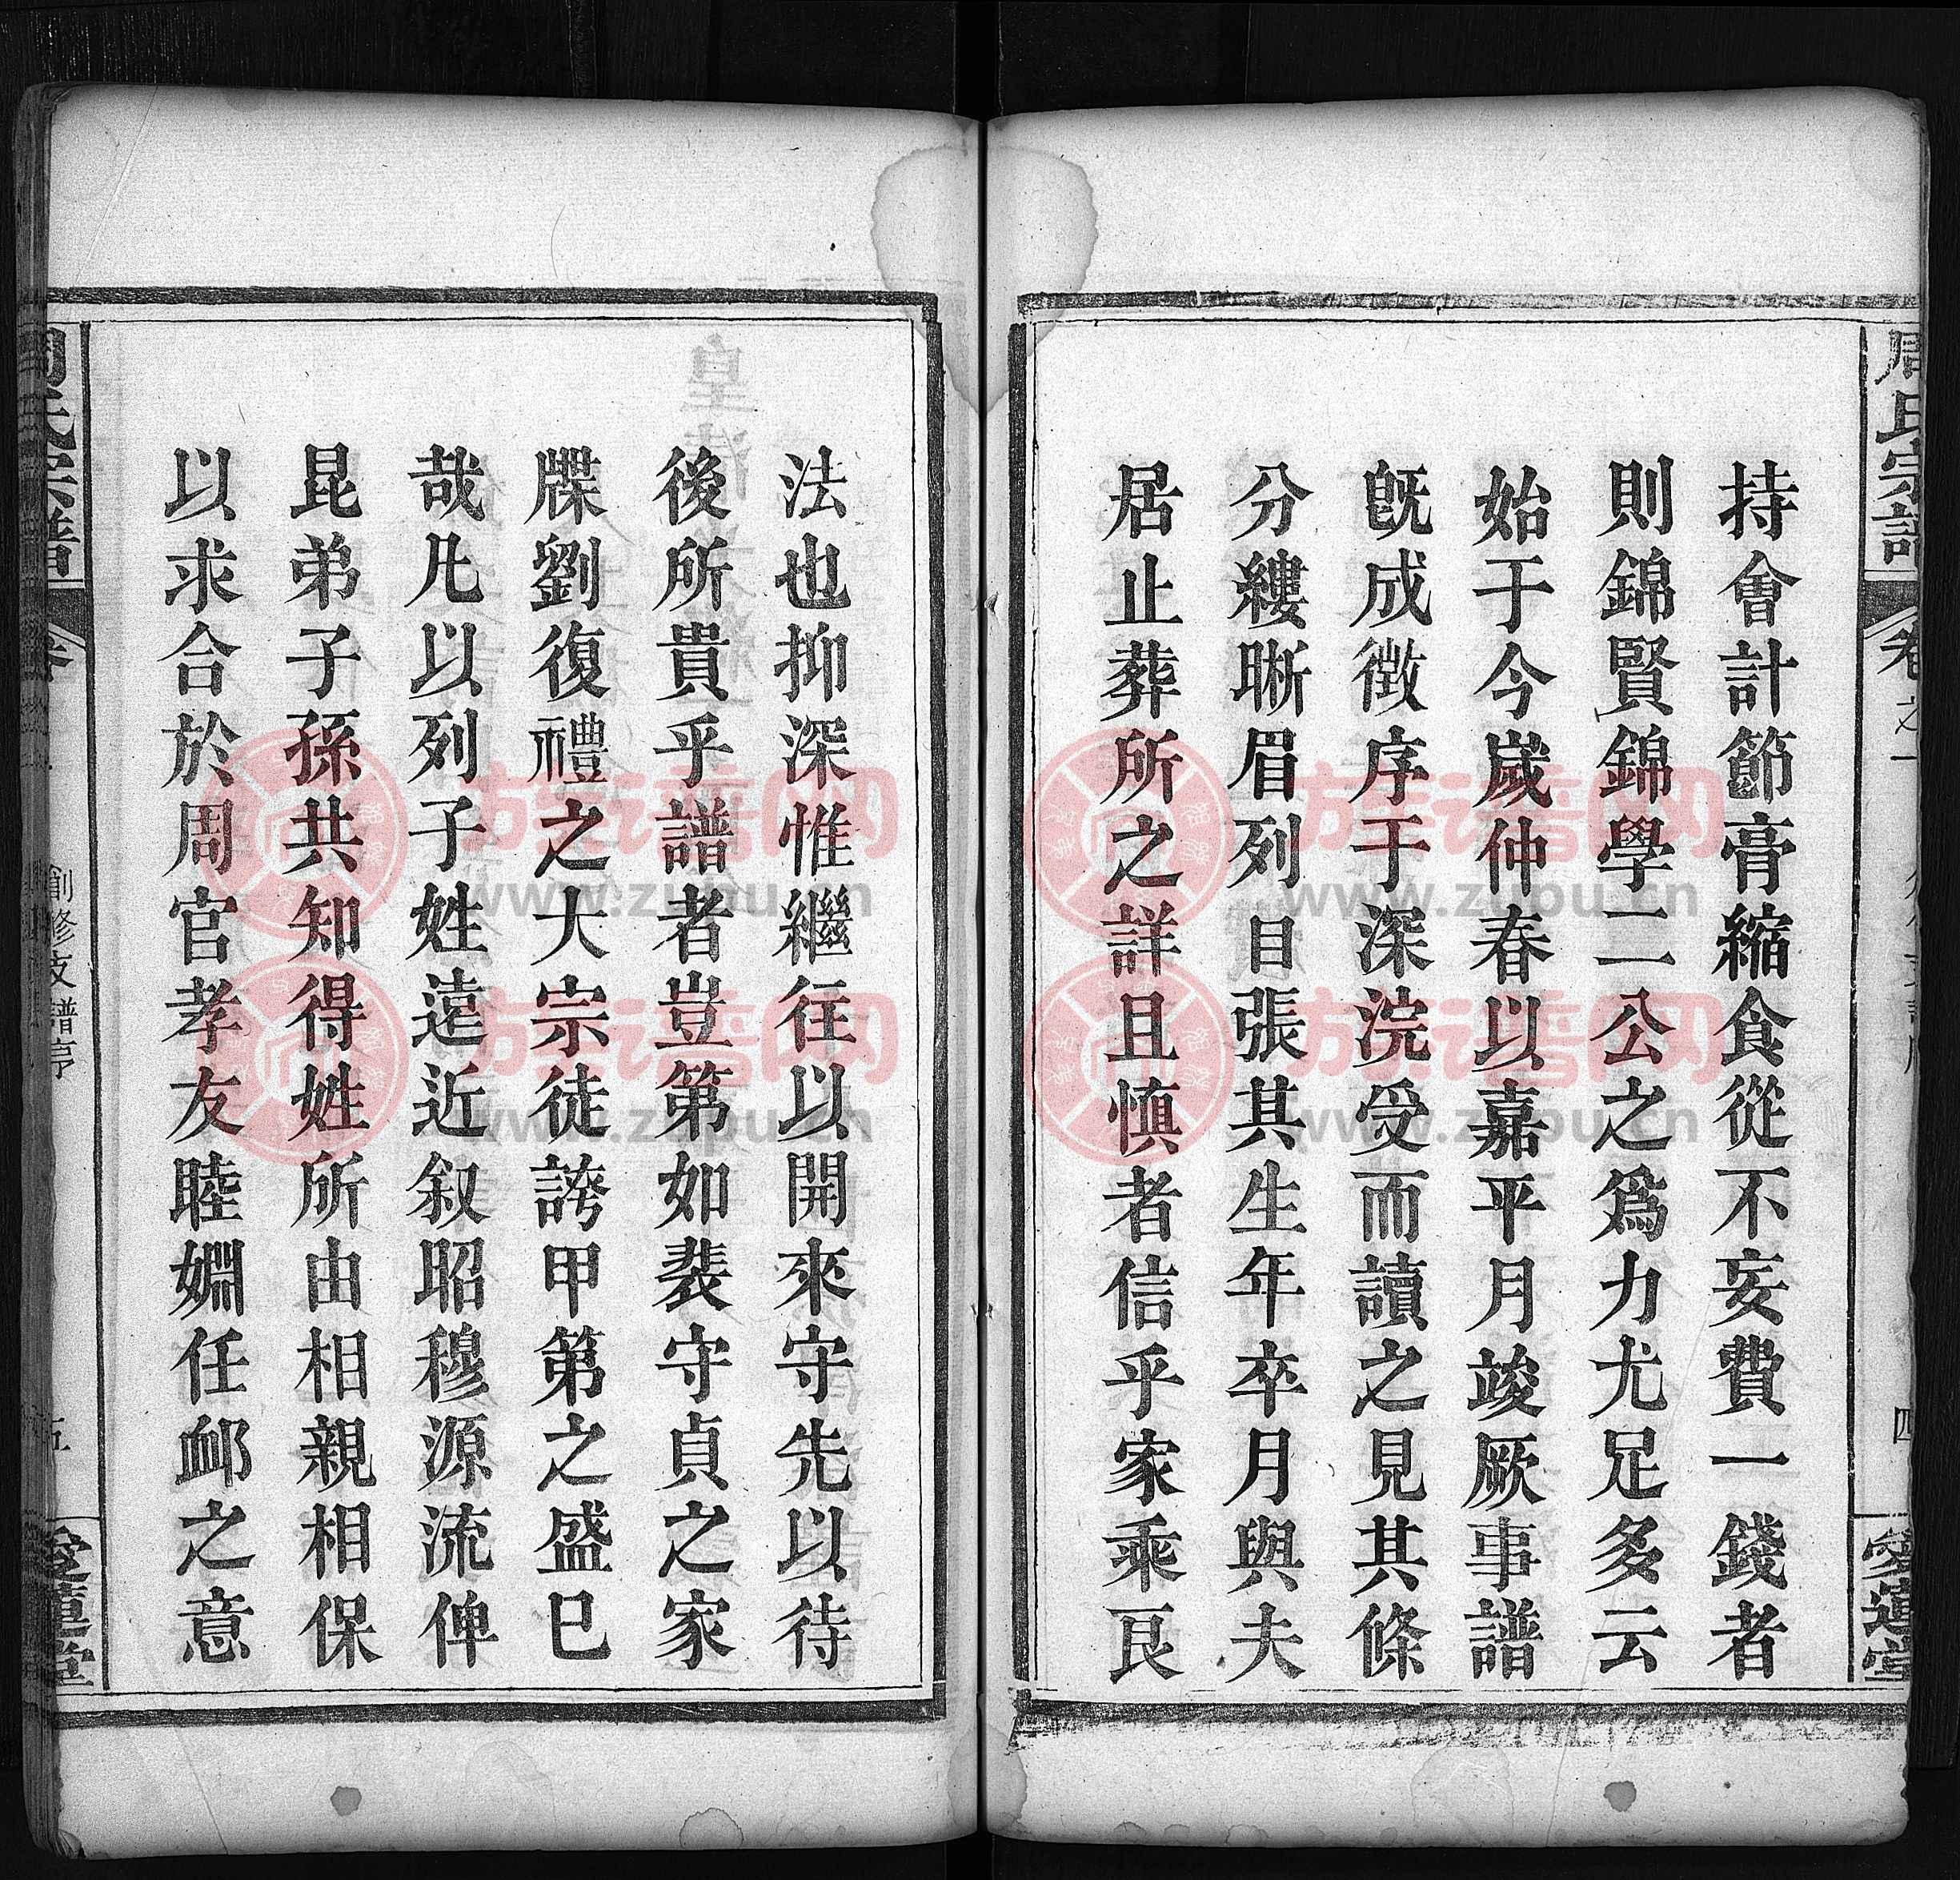 周氏宗譜
卷之一
四
愛蓮堂
持會計節膏縮食從不妄費一錢者
則錦賢錦學二公之爲力尤足多云
始于今歲仲春以嘉平月竣厥事譜
既成徵序于深浣受而讀之見其條
分縷晰眉列目張其生年卒月與夫
居止葬所之詳且慎者信乎家乘艮
法也抑深惟繼往以開來守先以待
後所貴乎譜者豈第如裴守貞之家
牒劉復禮之大宗徒誇甲第之盛已
哉凡以列子姓遠近叙昭穆源流俾
昆弟子孫共知得姓所由相親相保
以求合於周官孝友睦婣任䘏之意
周氏宗譜
卷
創修支譜序
五
愛蓮堂
族谱网
www.zupu.cn
族谱网
www.zupu.cn
族谱网
www.zupu.cn
族谱网
www.zupu.cn